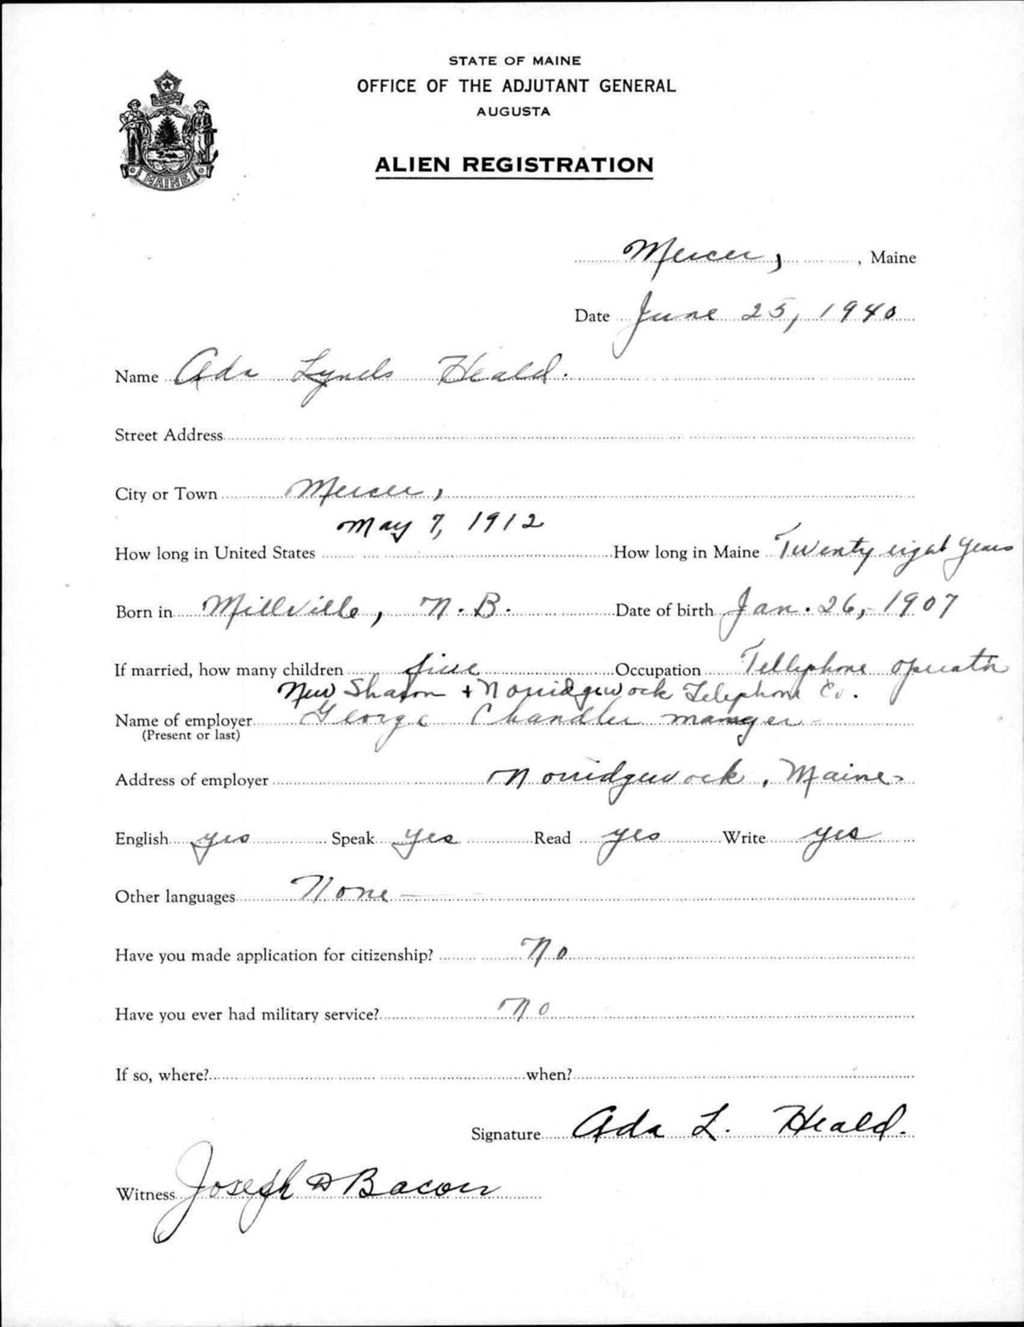 STATE OF MAINE
OFFICE OF THE ADJUTANT GENERAL
AUGUSTA
ALIEN REGISTRATION
MAINE
Mercer, , Maine
Date June 25, 1940
Name Ada Lynds Heald.
Street Address
City or Town Mercer,
May 7, 1912
How long in United States How long in Maine Twenty eight years
Born in Millville, N.B. Date of birth Jan. 26, 1907
If married, how many children five Occupation Tellephone operator
New Sharon + Norridgewock Telephone Co.
Name of employer George Chandler manager -
(Present or last)
Address of employer Norridgewock, Maine-
English yes Speak yes Read yes Write yes
Other languages None -
Have you made application for citizenship? No
Have you ever had military service? No
If so, where? when?
Signature Ada L. Heald.
Witness Joseph D Bacon